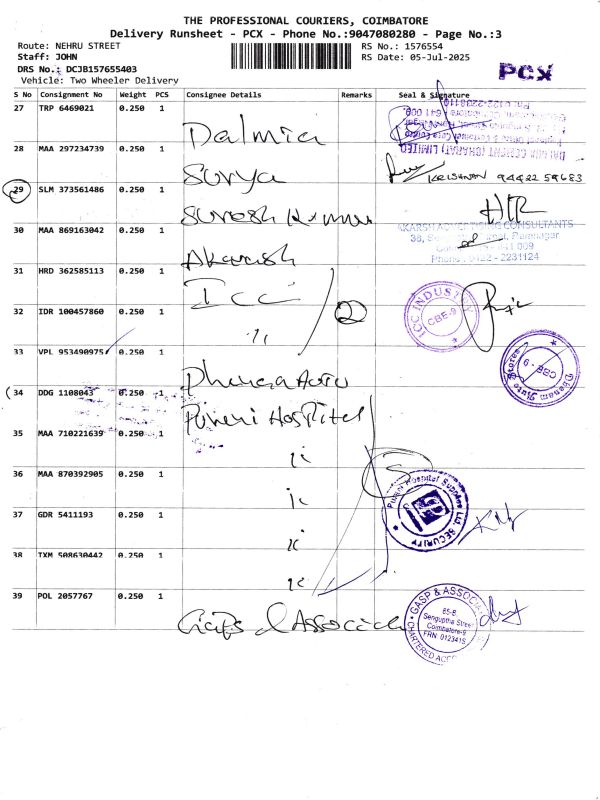 THE PROFESSIONAL COURIERS, COIMBATORE
Delivery Runsheet - PCX - Phone No.:9047080280 - Page No.:3
Route: NEHRU STREET RS No.: 1576554
Staff: JOHN RS Date: 05-Jul-2025
DRS No.: DCJB157655403
Vehicle: Two Wheeler Delivery
PCX
S No Consignment No Weight PCS Consignee Details Remarks Seal & Signature
27 TRP 6469021 0.250 1 Dalmia
DALMIA CEMENT (BHARAT) LIMITED
28 MAA 297234739 0.250 1 Surya KRISHNAN 9442259683
29 SLM 373561486 0.250 1 Suresh Kumar
30 MAA 869163042 0.250 1 Akarsh
AKARSH ADVERTISING CONSULTANTS
Phone : 0422 - 2231124
31 HRD 362585113 0.250 1 ICC 2
ICC INDUSTRY
CBE-9
32 IDR 100457860 0.250 1 "
33 VPL 953490975 0.250 1 Dhanam Auto
Dhanam Auto Stores
CBE - 9
34 DDG 1108043 0.250 1 Puneri Hospital
35 MAA 710221639 0.250 1 "
36 MAA 870392905 0.250 1 "
Hospital Supplies Ltd. SECURITY
37 GDR 5411193 0.250 1 "
38 TXM 508630442 0.250 1 "
39 POL 2057767 0.250 1 Gasp & Associate
GASP & ASSOCIA
65-B,
Senguptha Street
Coimbatore-9
FRN 012341S
CHARTERED ACCO